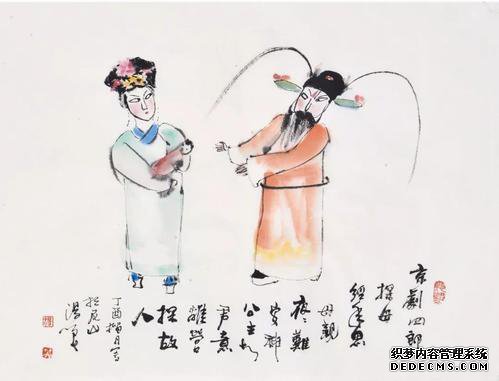 京劇四郎
探母
經年思
母親
夜々難
公主
君意
離營
探故
人
丁酉 月寫
山
湯
织梦内容管理系统
DEDECMS.COM